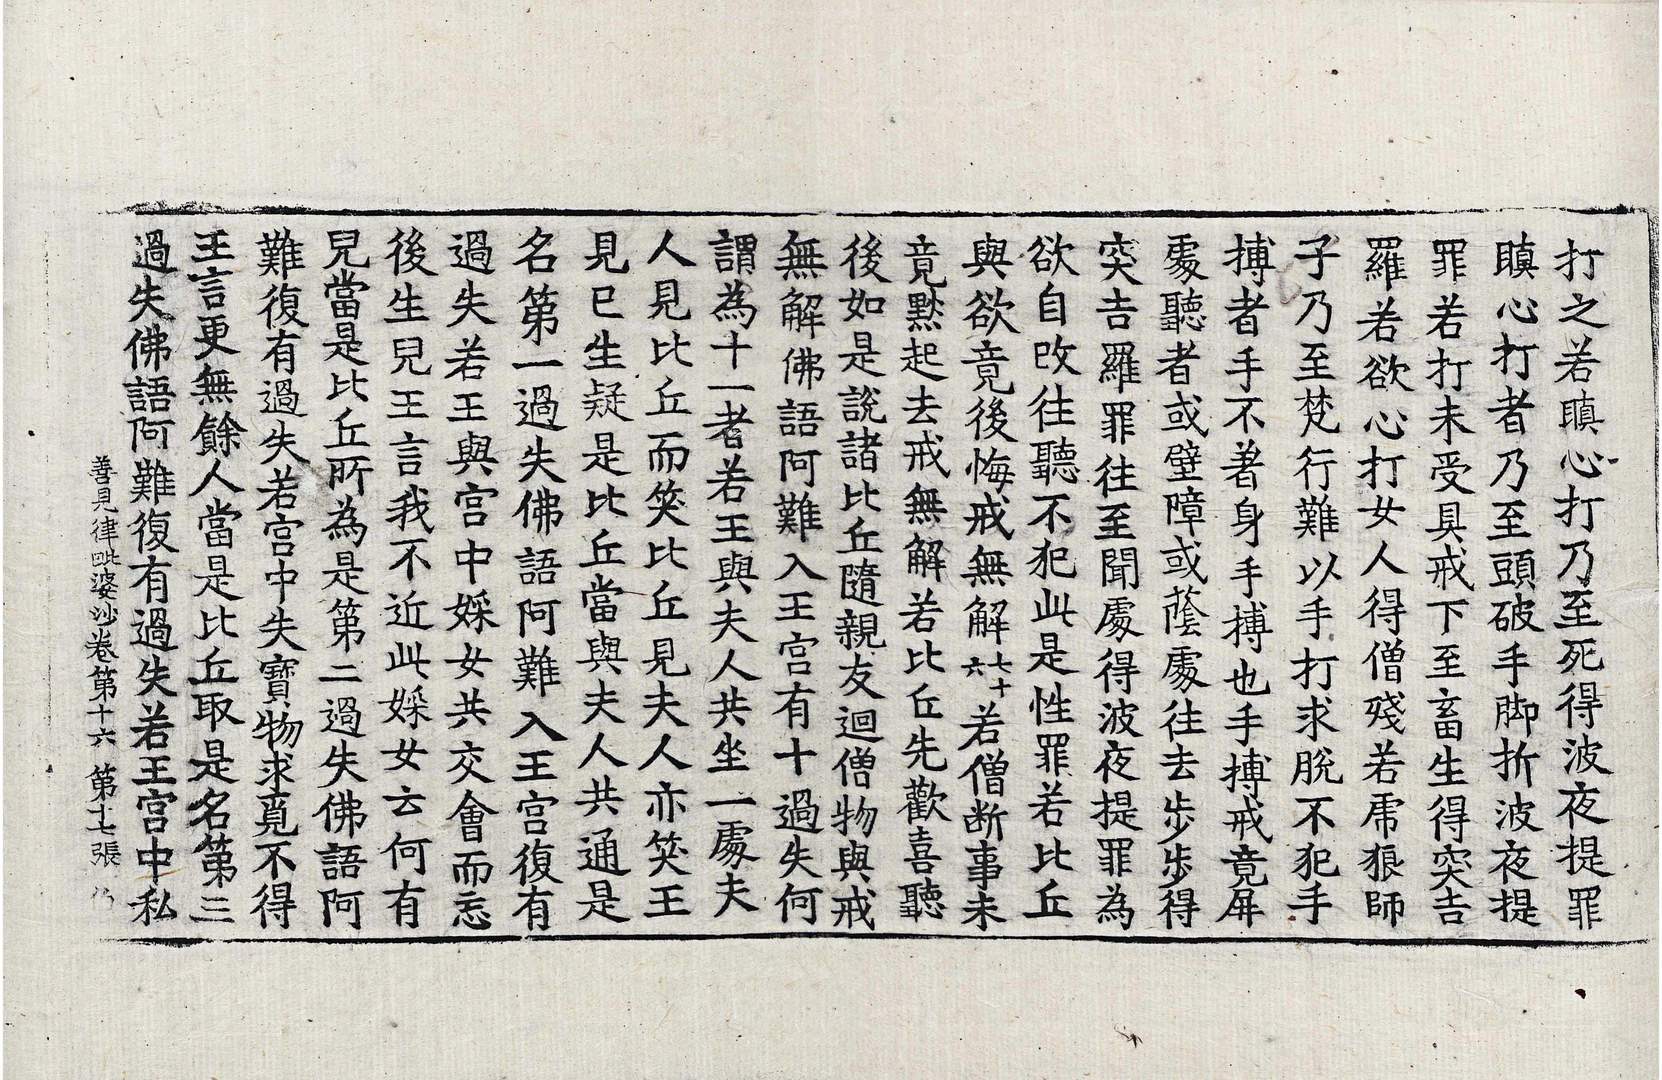 打之若瞋心打乃至死得波夜提罪
瞋心打者乃至頭破手脚折波夜提
罪若打未受具戒下至畜生得突吉
羅若欲心打女人得僧殘若虎狼師
子乃至梵行難以手打求脫不犯手
搏者手不著身手搏也手搏戒竟屏
處聽者或壁障或蔭處往去步步得
突吉羅罪往至聞處得波夜提罪為
欲自改往聽不犯此是性罪若比丘
與欲竟後悔戒無解七十六若僧斷事未
竟黙起去戒無解若比丘先歡喜聽
後如是說諸比丘隨親友迴僧物與戒
無解佛語阿難入王宮有十過失何
謂為十一者若王與夫人共坐一處夫
人見比丘而笑比丘見夫人亦笑王
見已生疑是比丘當與夫人共通是
名第一過失佛語阿難入王宮復有
過失若王與宮中婇女共交會而忘
後生兒王言我不近此婇女云何有
兒當是比丘所為是第二過失佛語阿
難復有過失若宮中失寶物求覓不得
王言更無餘人當是比丘取是名第三
過失佛語阿難復有過失若王宮中私
善見律毗婆沙卷第十六 第十七張 乃